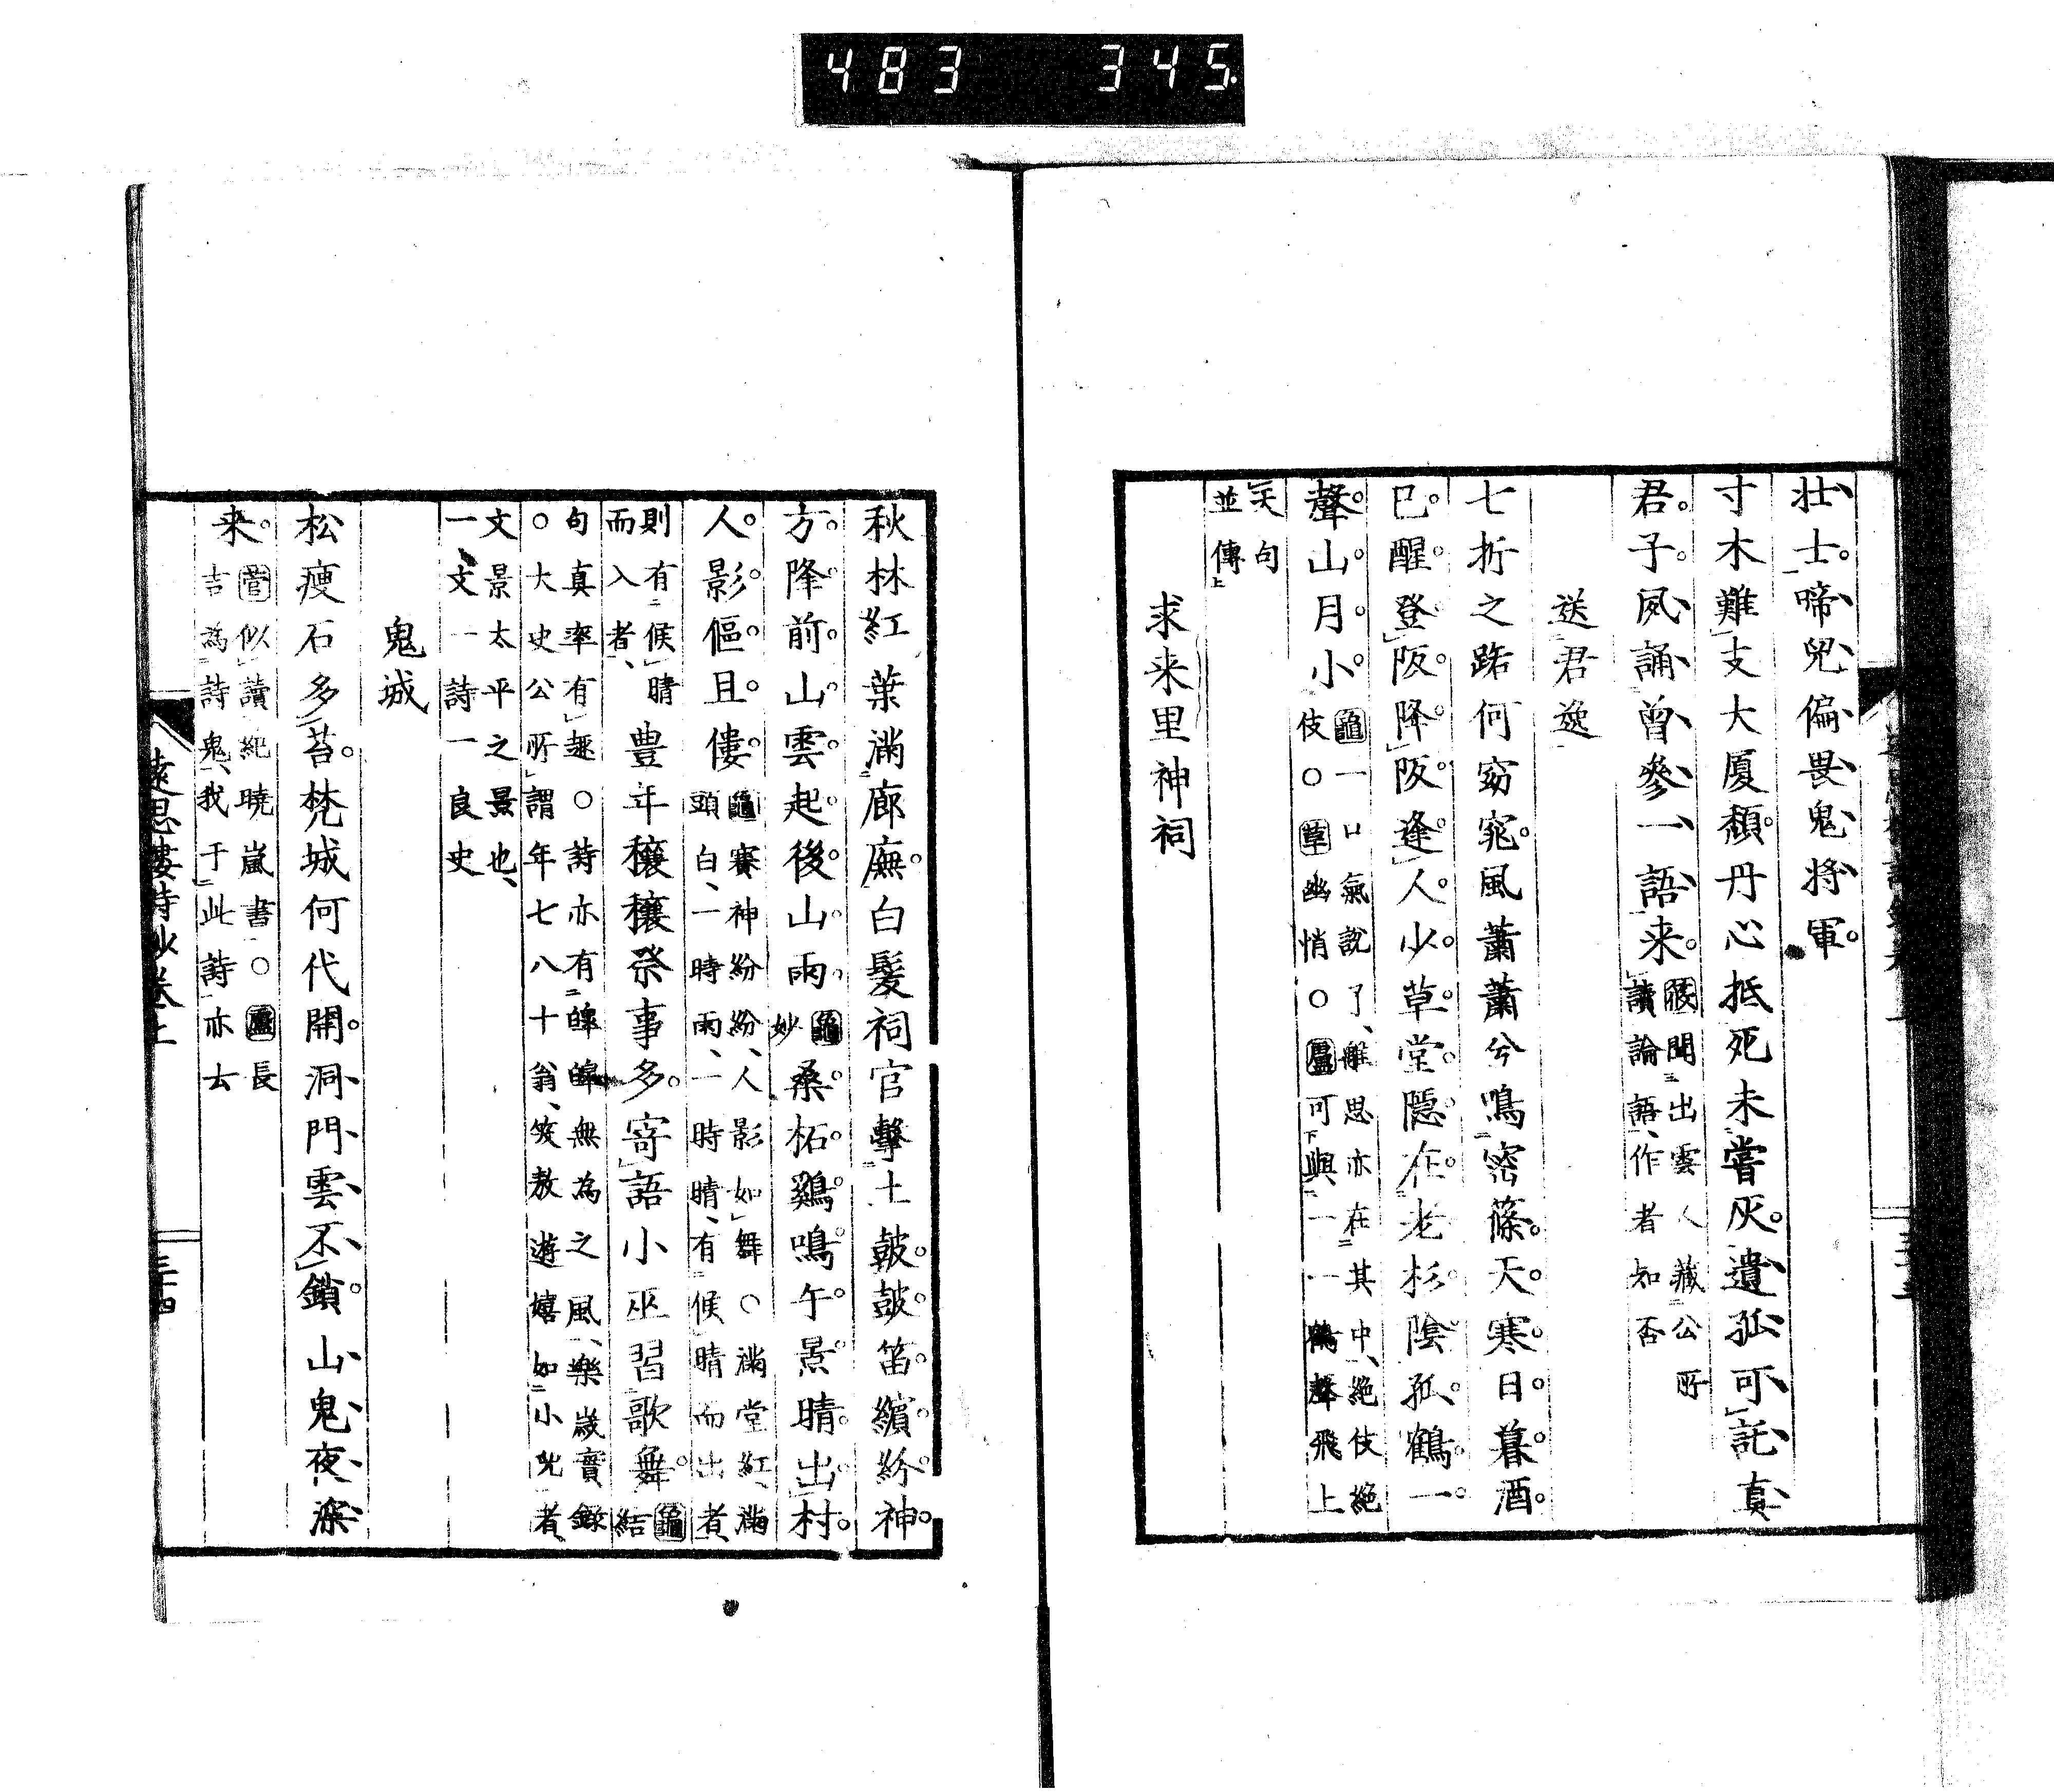 483 345
壮士。啼兒偏畏鬼將軍。
寸木難支大厦頽。丹心抵死未嘗灰。遺孤可託真
君。子。夙誦曾參一語来。
聞出雲人藏公所
讀論語、作者知否
送君逸
七折之路何窈窕。風蕭蕭兮鳴密篠。天。寒。日。暮。酒。
已。醒。登。阪。降。阪。逢。人。少。草。堂。隱。在。老。杉。陰。孤。鶴。一。
聲。山。月。小。
龜一口氣說了、雖思亦在其中、絶伎絶
伎○草幽悄○廬可與一一鶴聲飛上
天句
並傳
求来里神祠
秋林紅葉滿廊廡。白髮祠官擊土皷。皷。笛。繽。紛。神。
方。降。前。山。雲。起。後。山。雨。
龜
妙
桑。柘。鷄。鳴。午。景。晴。出。村。
人。影。傴。且。僂。
龜賽神紛紛、人影如舞○滿堂紅、滿
頭白、一時雨、一時晴、有候晴而出者、
則有候晴
而入者、
豊年穰穰祭事多。寄語小巫習歌舞。
龜
結
句真率有趣○詩亦有皥皥無為之風、樂歲實錄
○大史公所謂年七八十翁、笑敖遊嬉如小児者、
文景太平之景也、
一文一詩一良史
鬼城
松瘦石多苔。梵城何代開。洞門雲不鎖。山鬼夜深
来。
菅似讀紀曉嵐書○廬長
吉為詩鬼、我于此詩亦云
遠思樓詩鈔卷上
三十四